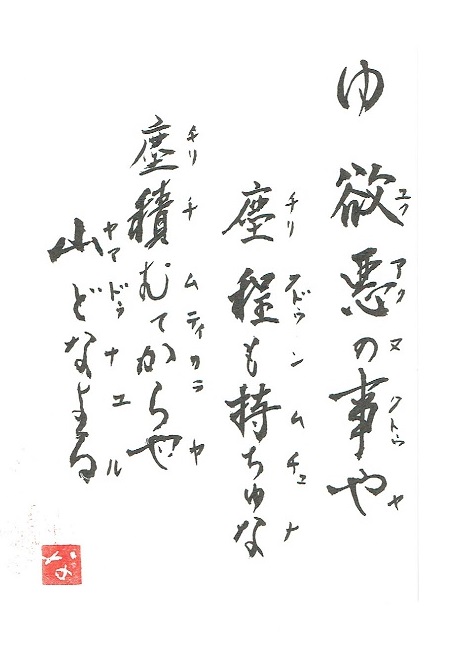 ゆ 欲悪の事や
ユク アク ヌ クトゥ ヤ
塵程も持ちゆな
チリ フドゥン ム チュ ナ
塵積むてからや
チリ チ ム ティ カラ ヤ
山どなよる
ヤマ ドゥ ナユル
な